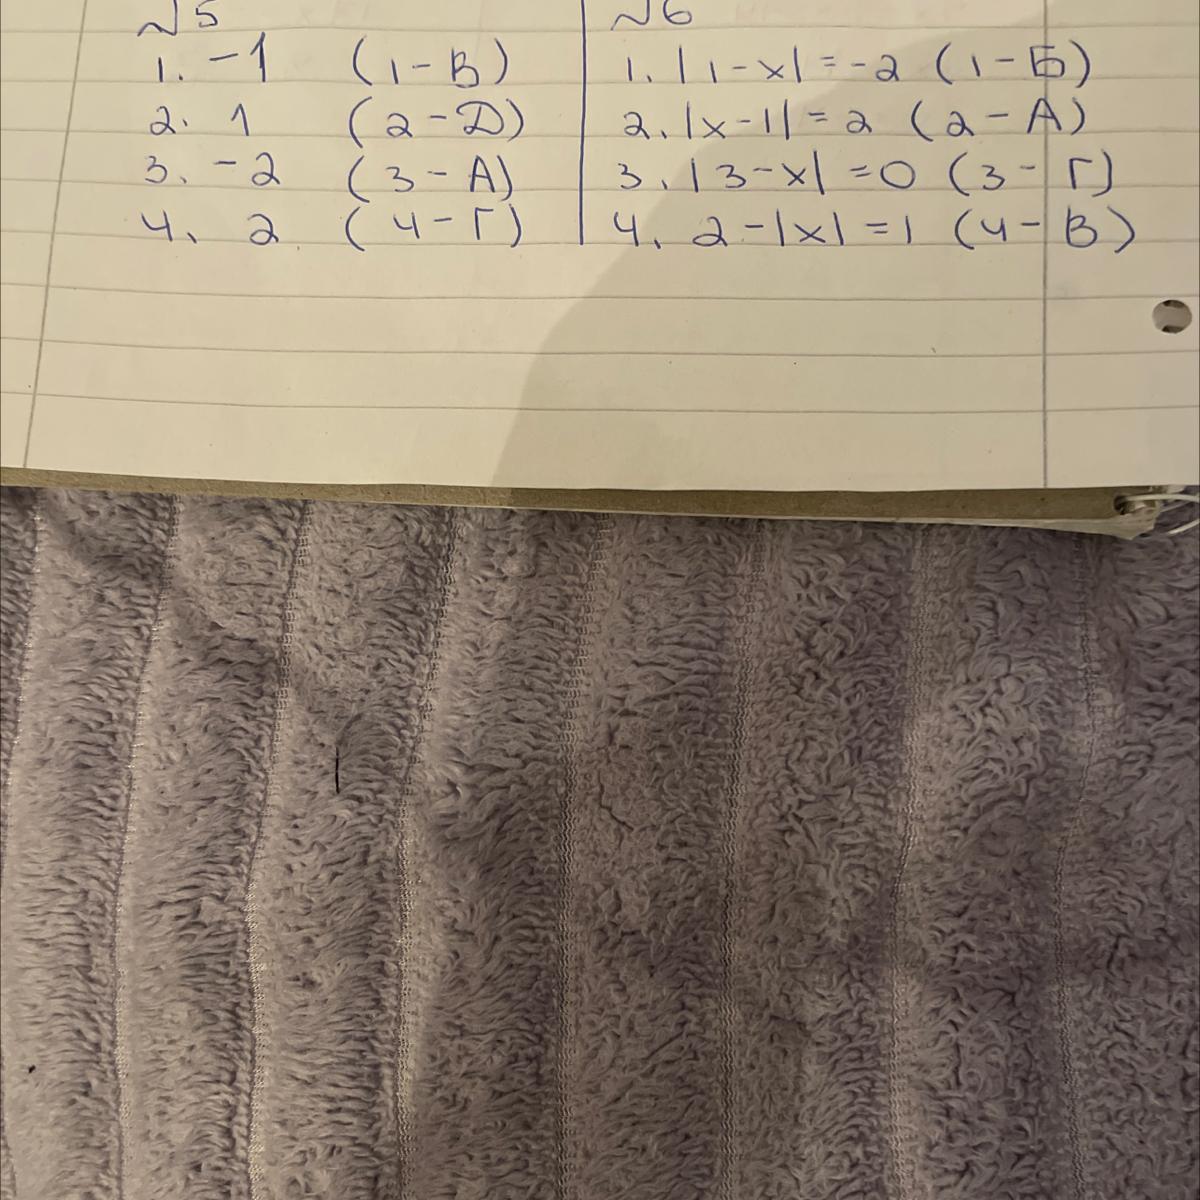 №5
1. -1 (1-В)
2. 1 (2-Д)
3. -2 (3-А)
4. 2 (4-Г)
№6
1. |1-x|=-2 (1-Б)
2. |x-1|=2 (2-А)
3. |3-x|=0 (3-Г)
4. 2-|x|=1 (4-В)